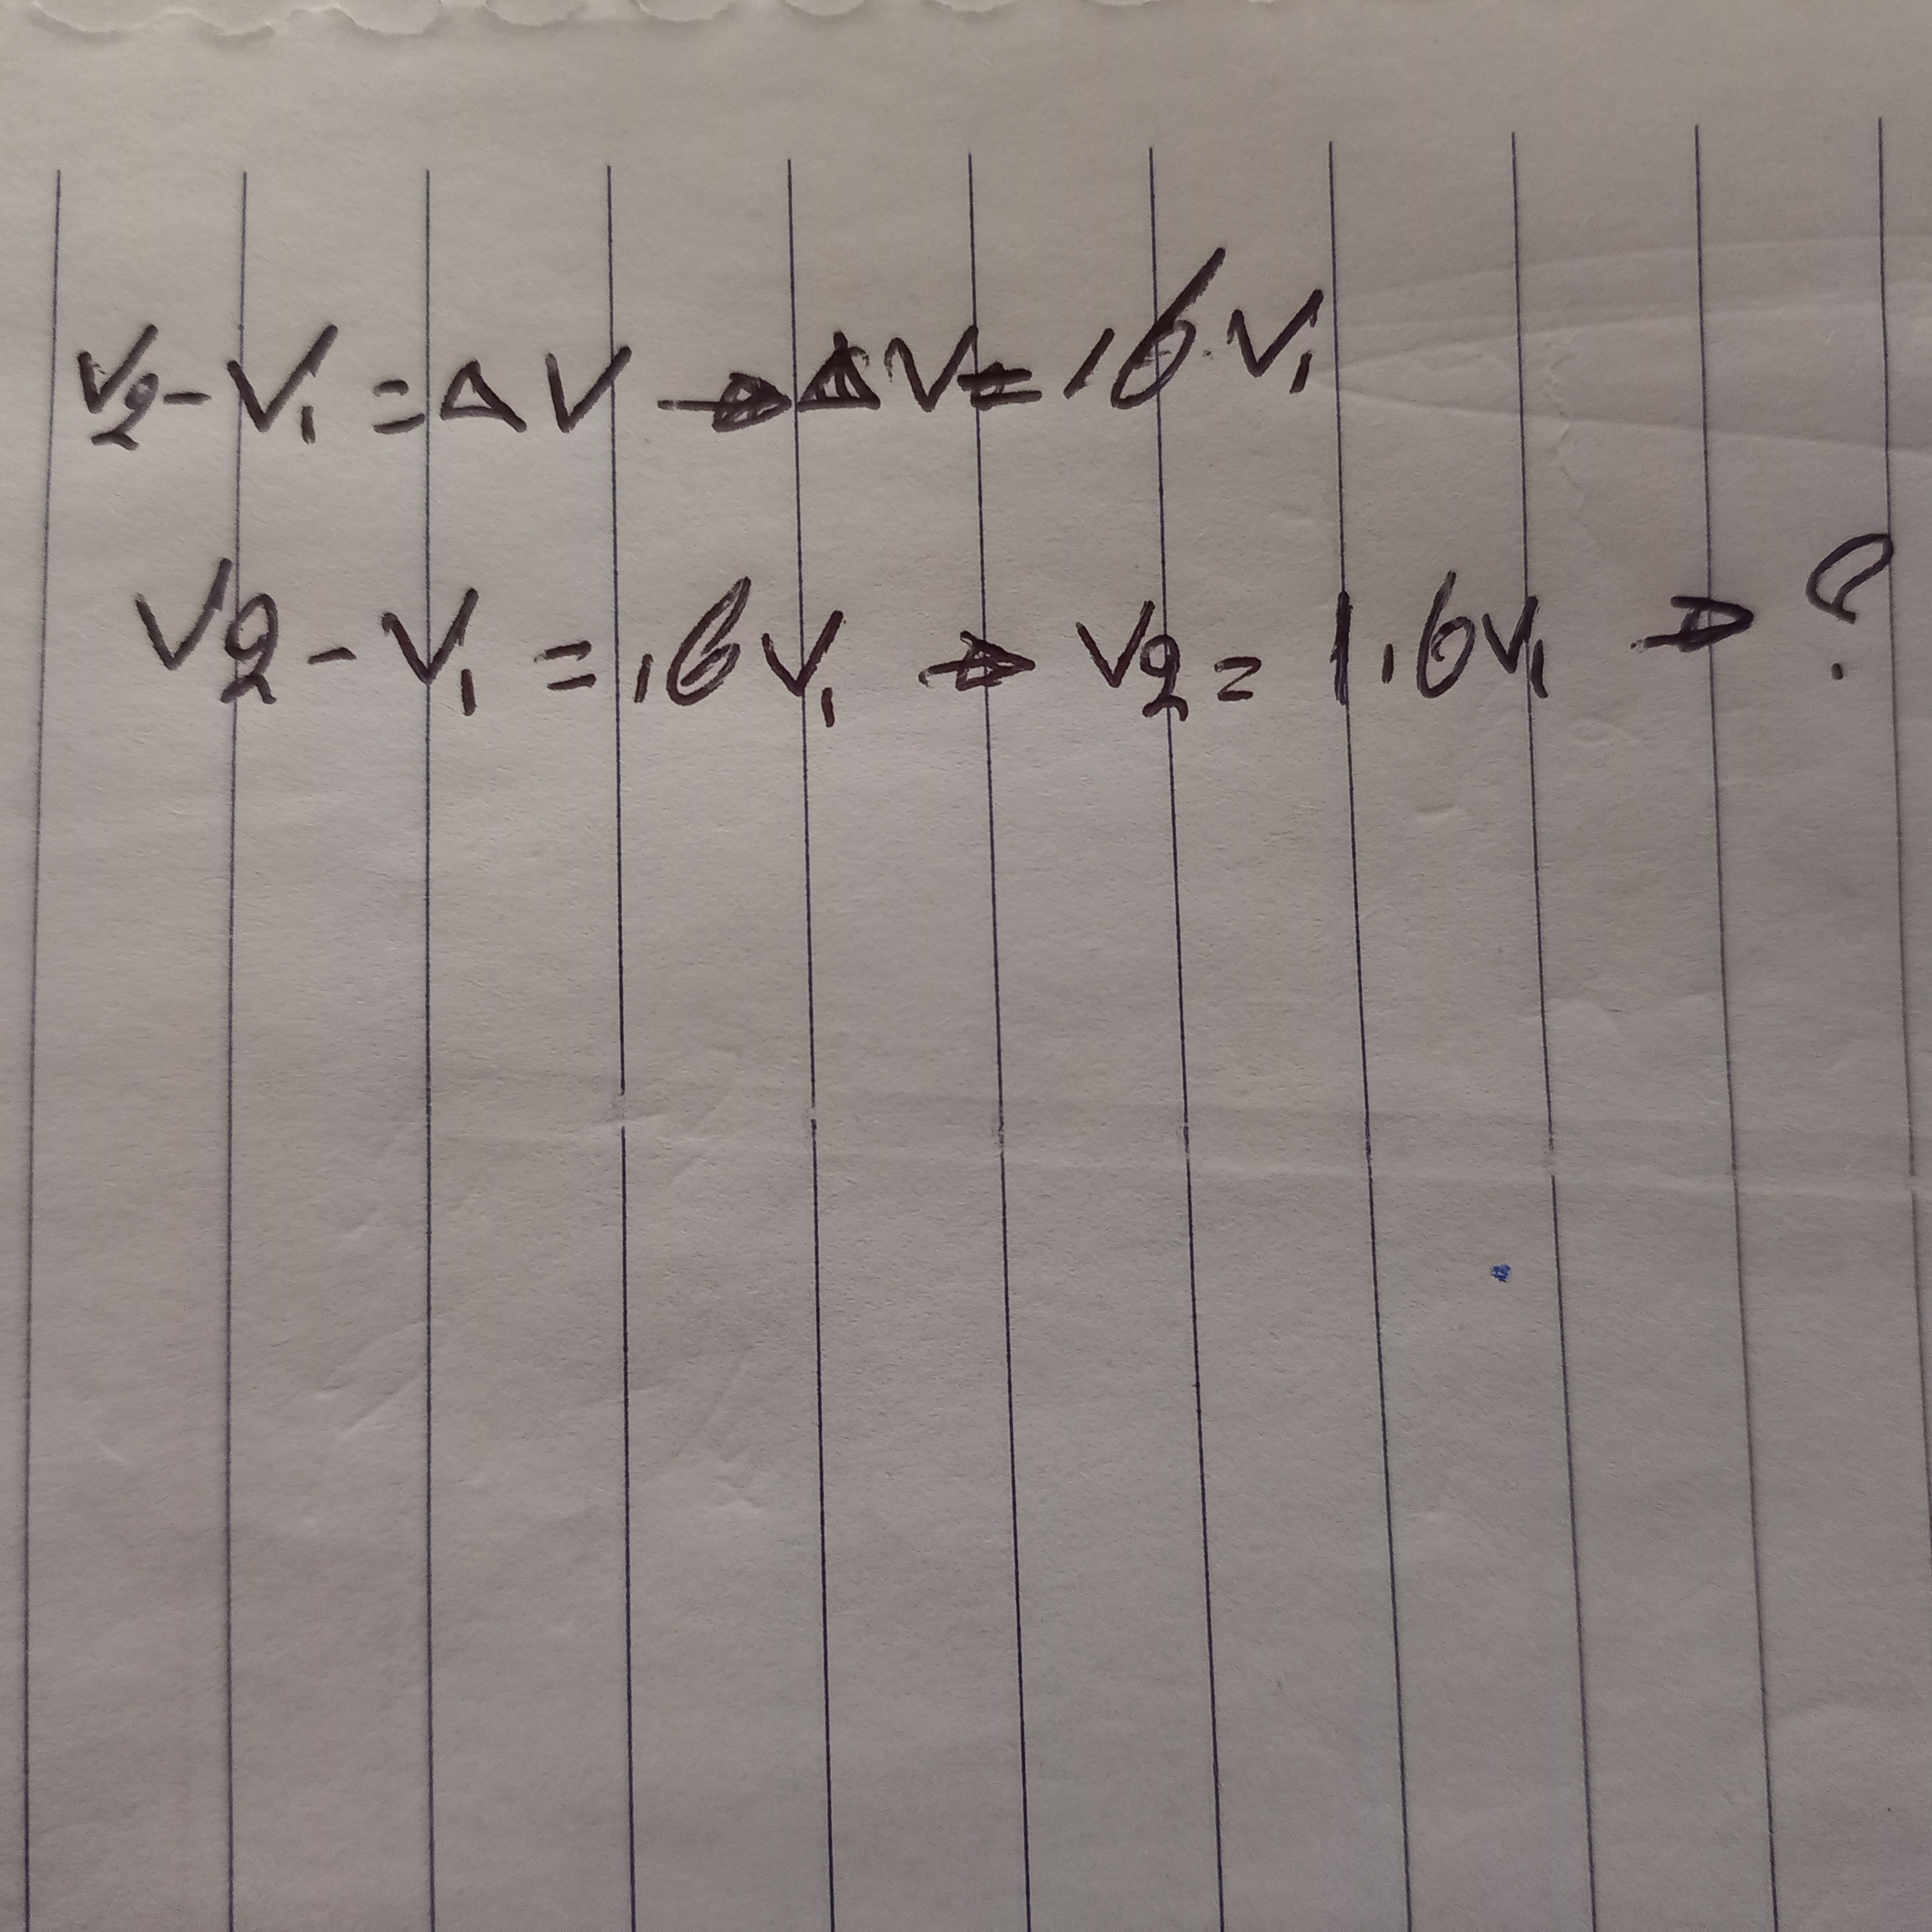 V2 - V1 = ΔV → ΔV = ,6 V1
V2 - V1 = ,6 V1 → V2 = 1,6 V1 → ?